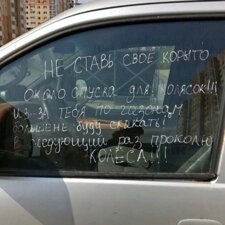 НЕ СТАВЬ СВОЕ КОРЫТО
ОКОЛО СПУСКА ДЛЯ! КОЛЯСОК!!!
ИЗ ЗА ТЕБЯ ПО ГАЗОНАМ
БОЛЬШЕ НЕ БУДУ СКАКАТЬ!
В СЛЕДУЮЩИЙ РАЗ ПРОКОЛЮ
КОЛЁСА!!!